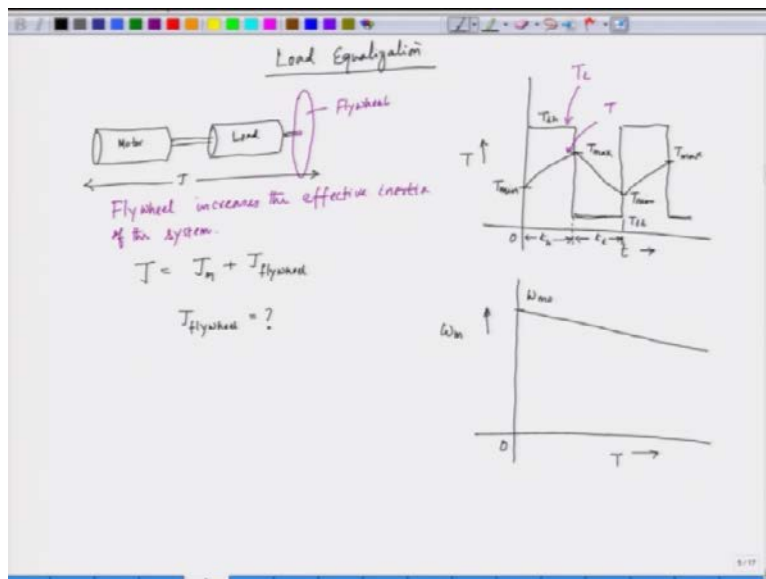 Load Equalization
Motor
Load
Flywheel
J
Flywheel increases the effective inertia
of the system.
J = Jm + Jflywheel
Jflywheel = ?
TL
T
TLh
T
Tmax
Tmax
Tmin
Tmin
TLl
0
th
tl
t
ωmo
ωm
0
T
5/17